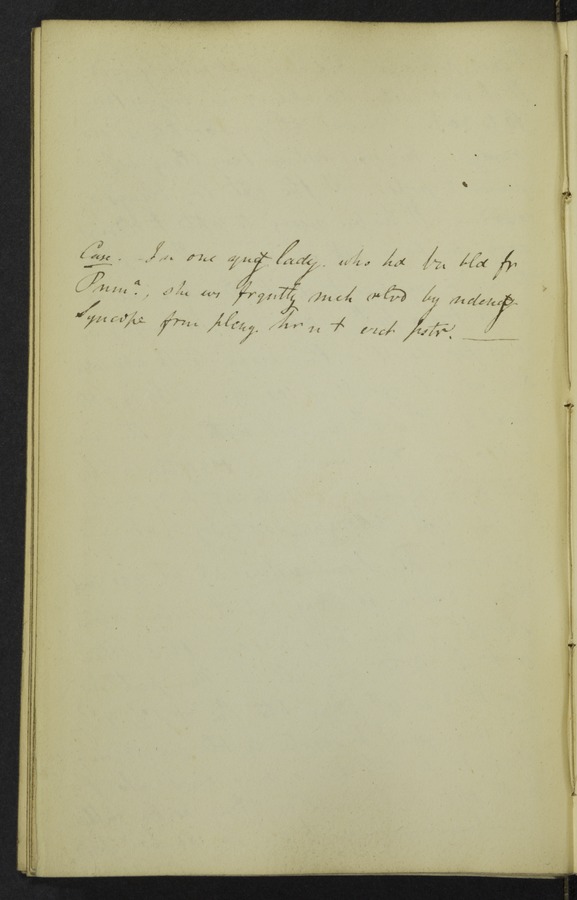 Case. - In one young lady. who hd bn bld fr
Pnma., she ws frqntly mch rlvd by ndcng
Syncope frm plcng. hr n t erct pstr. —